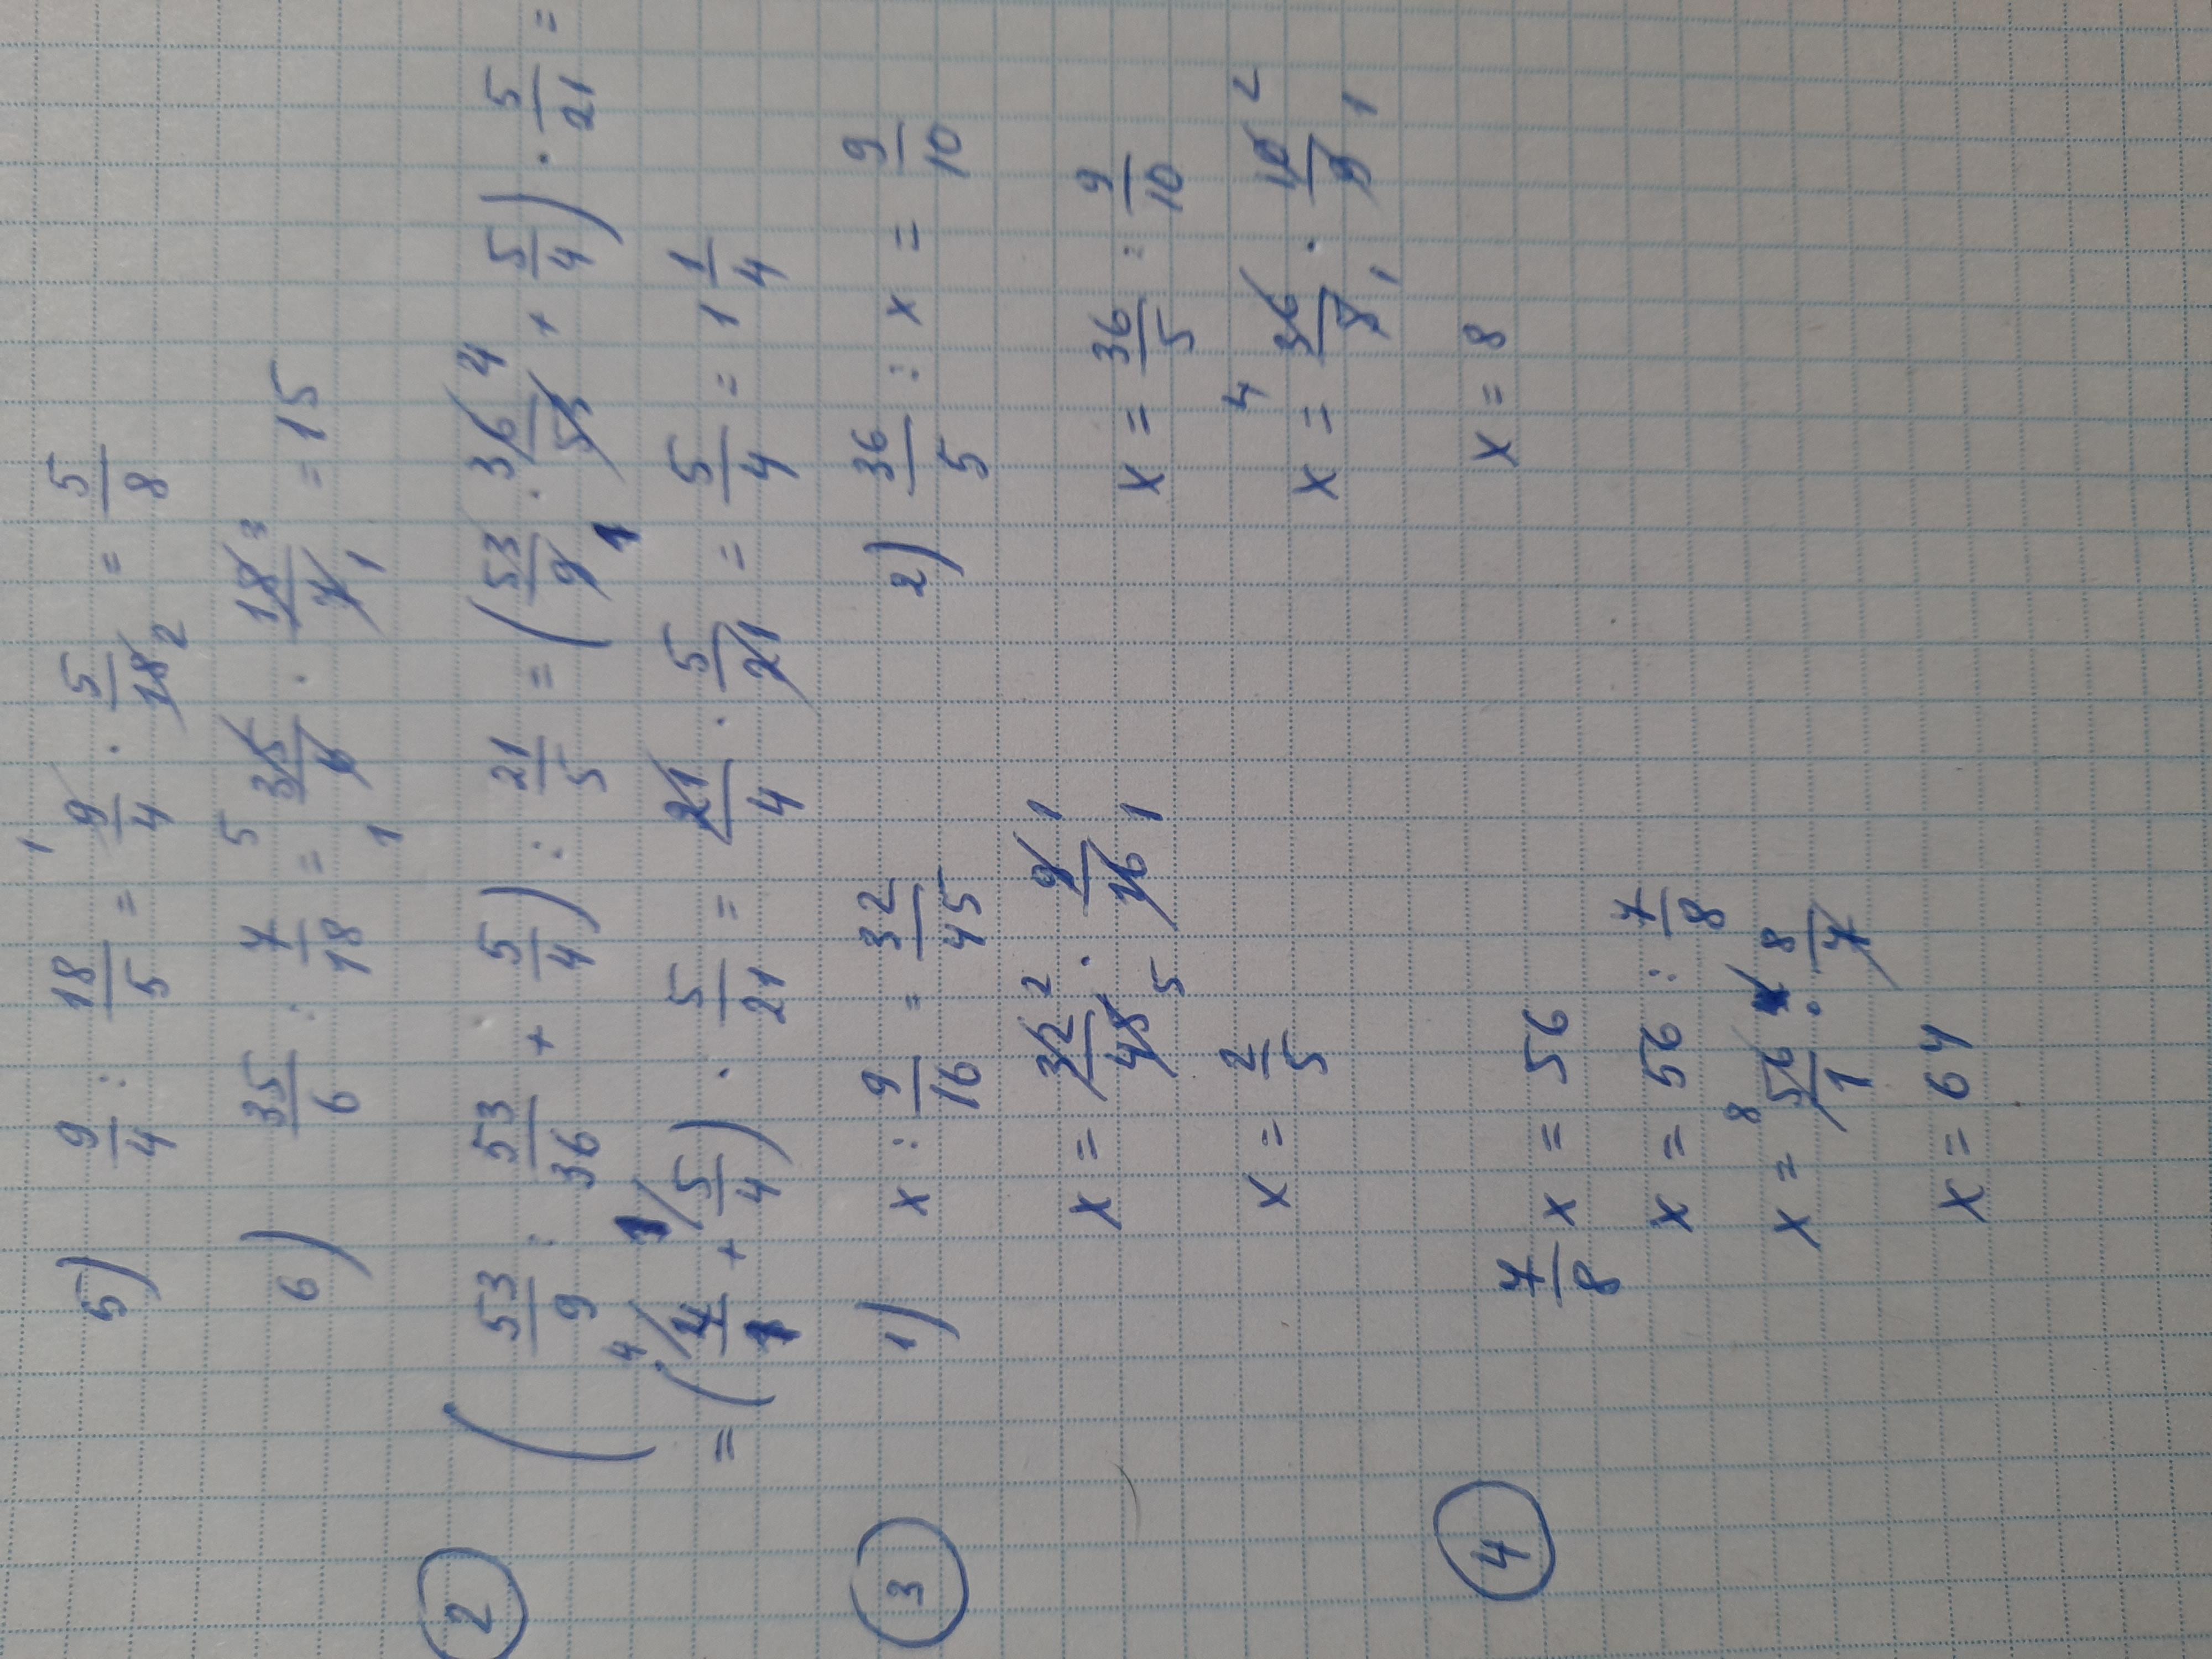 5) 9/4 : 18/5 = 9/4 · 5/18 = 5/8
6) 35/6 : 7/18 = 35/6 · 18/7 = 15
2 (53/9 : 53/36 + 5/4) : 21/5 = (53/9 · 36/53 + 5/4) · 5/21 =
= (4/1 + 5/4) · 5/21 = 21/4 · 5/21 = 5/4 = 1 1/4
3 1) x : 9/16 = 32/45 2) 36/5 : x = 9/10
x = 32/45 · 9/16 x = 36/5 : 9/10
x = 2/5 x = 36/5 · 10/9
x = 8
4 7/8 x = 56
x = 56 : 7/8
x = 56/1 · 8/7
x = 64